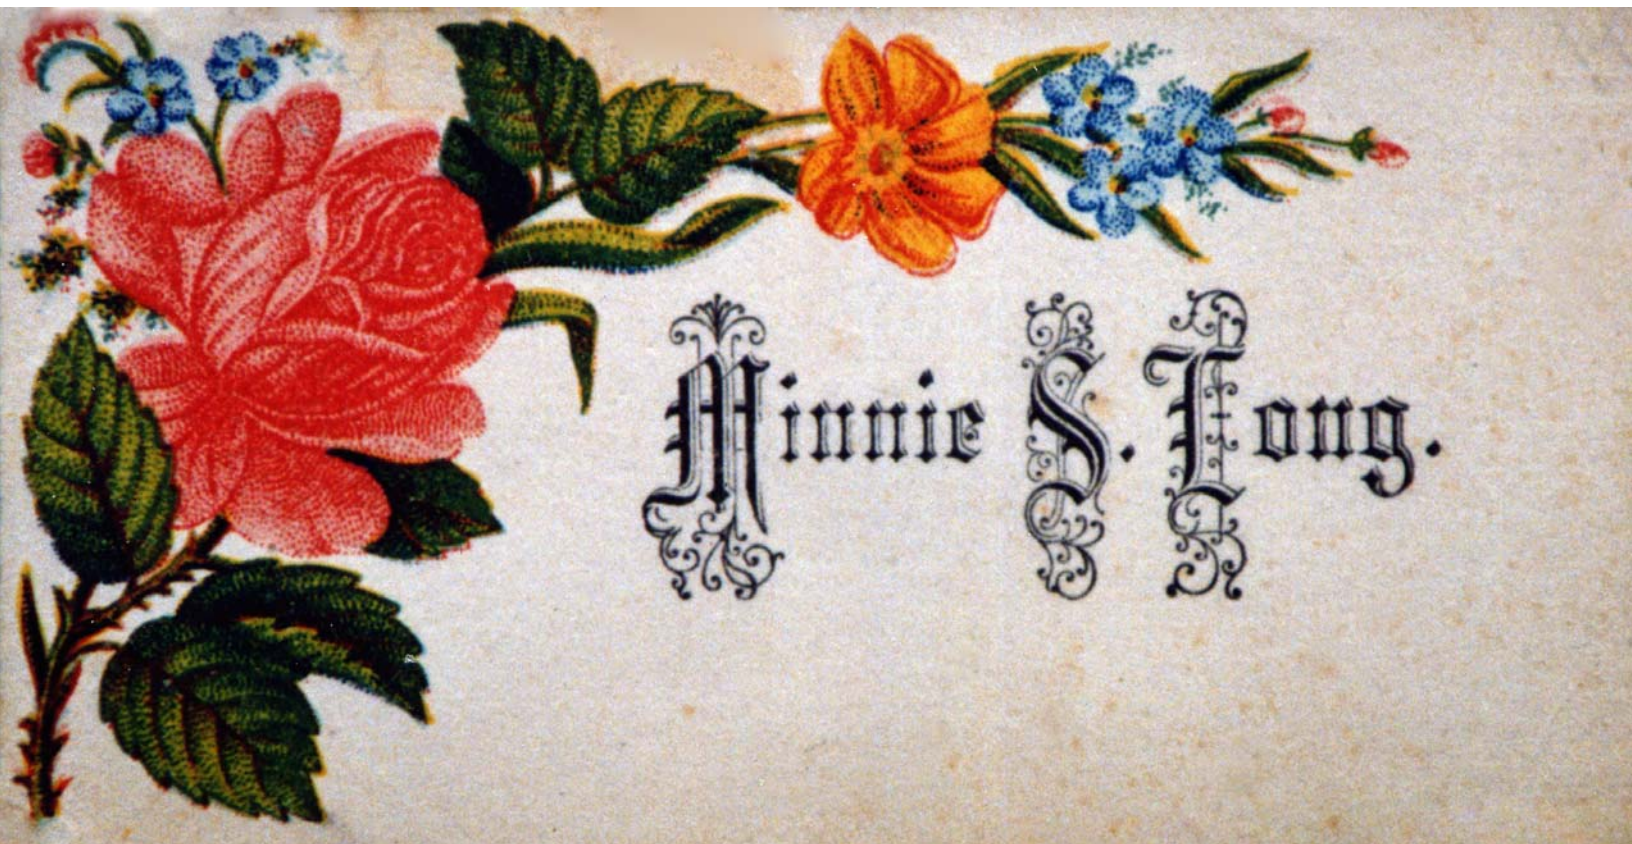 Minnie S. Long.